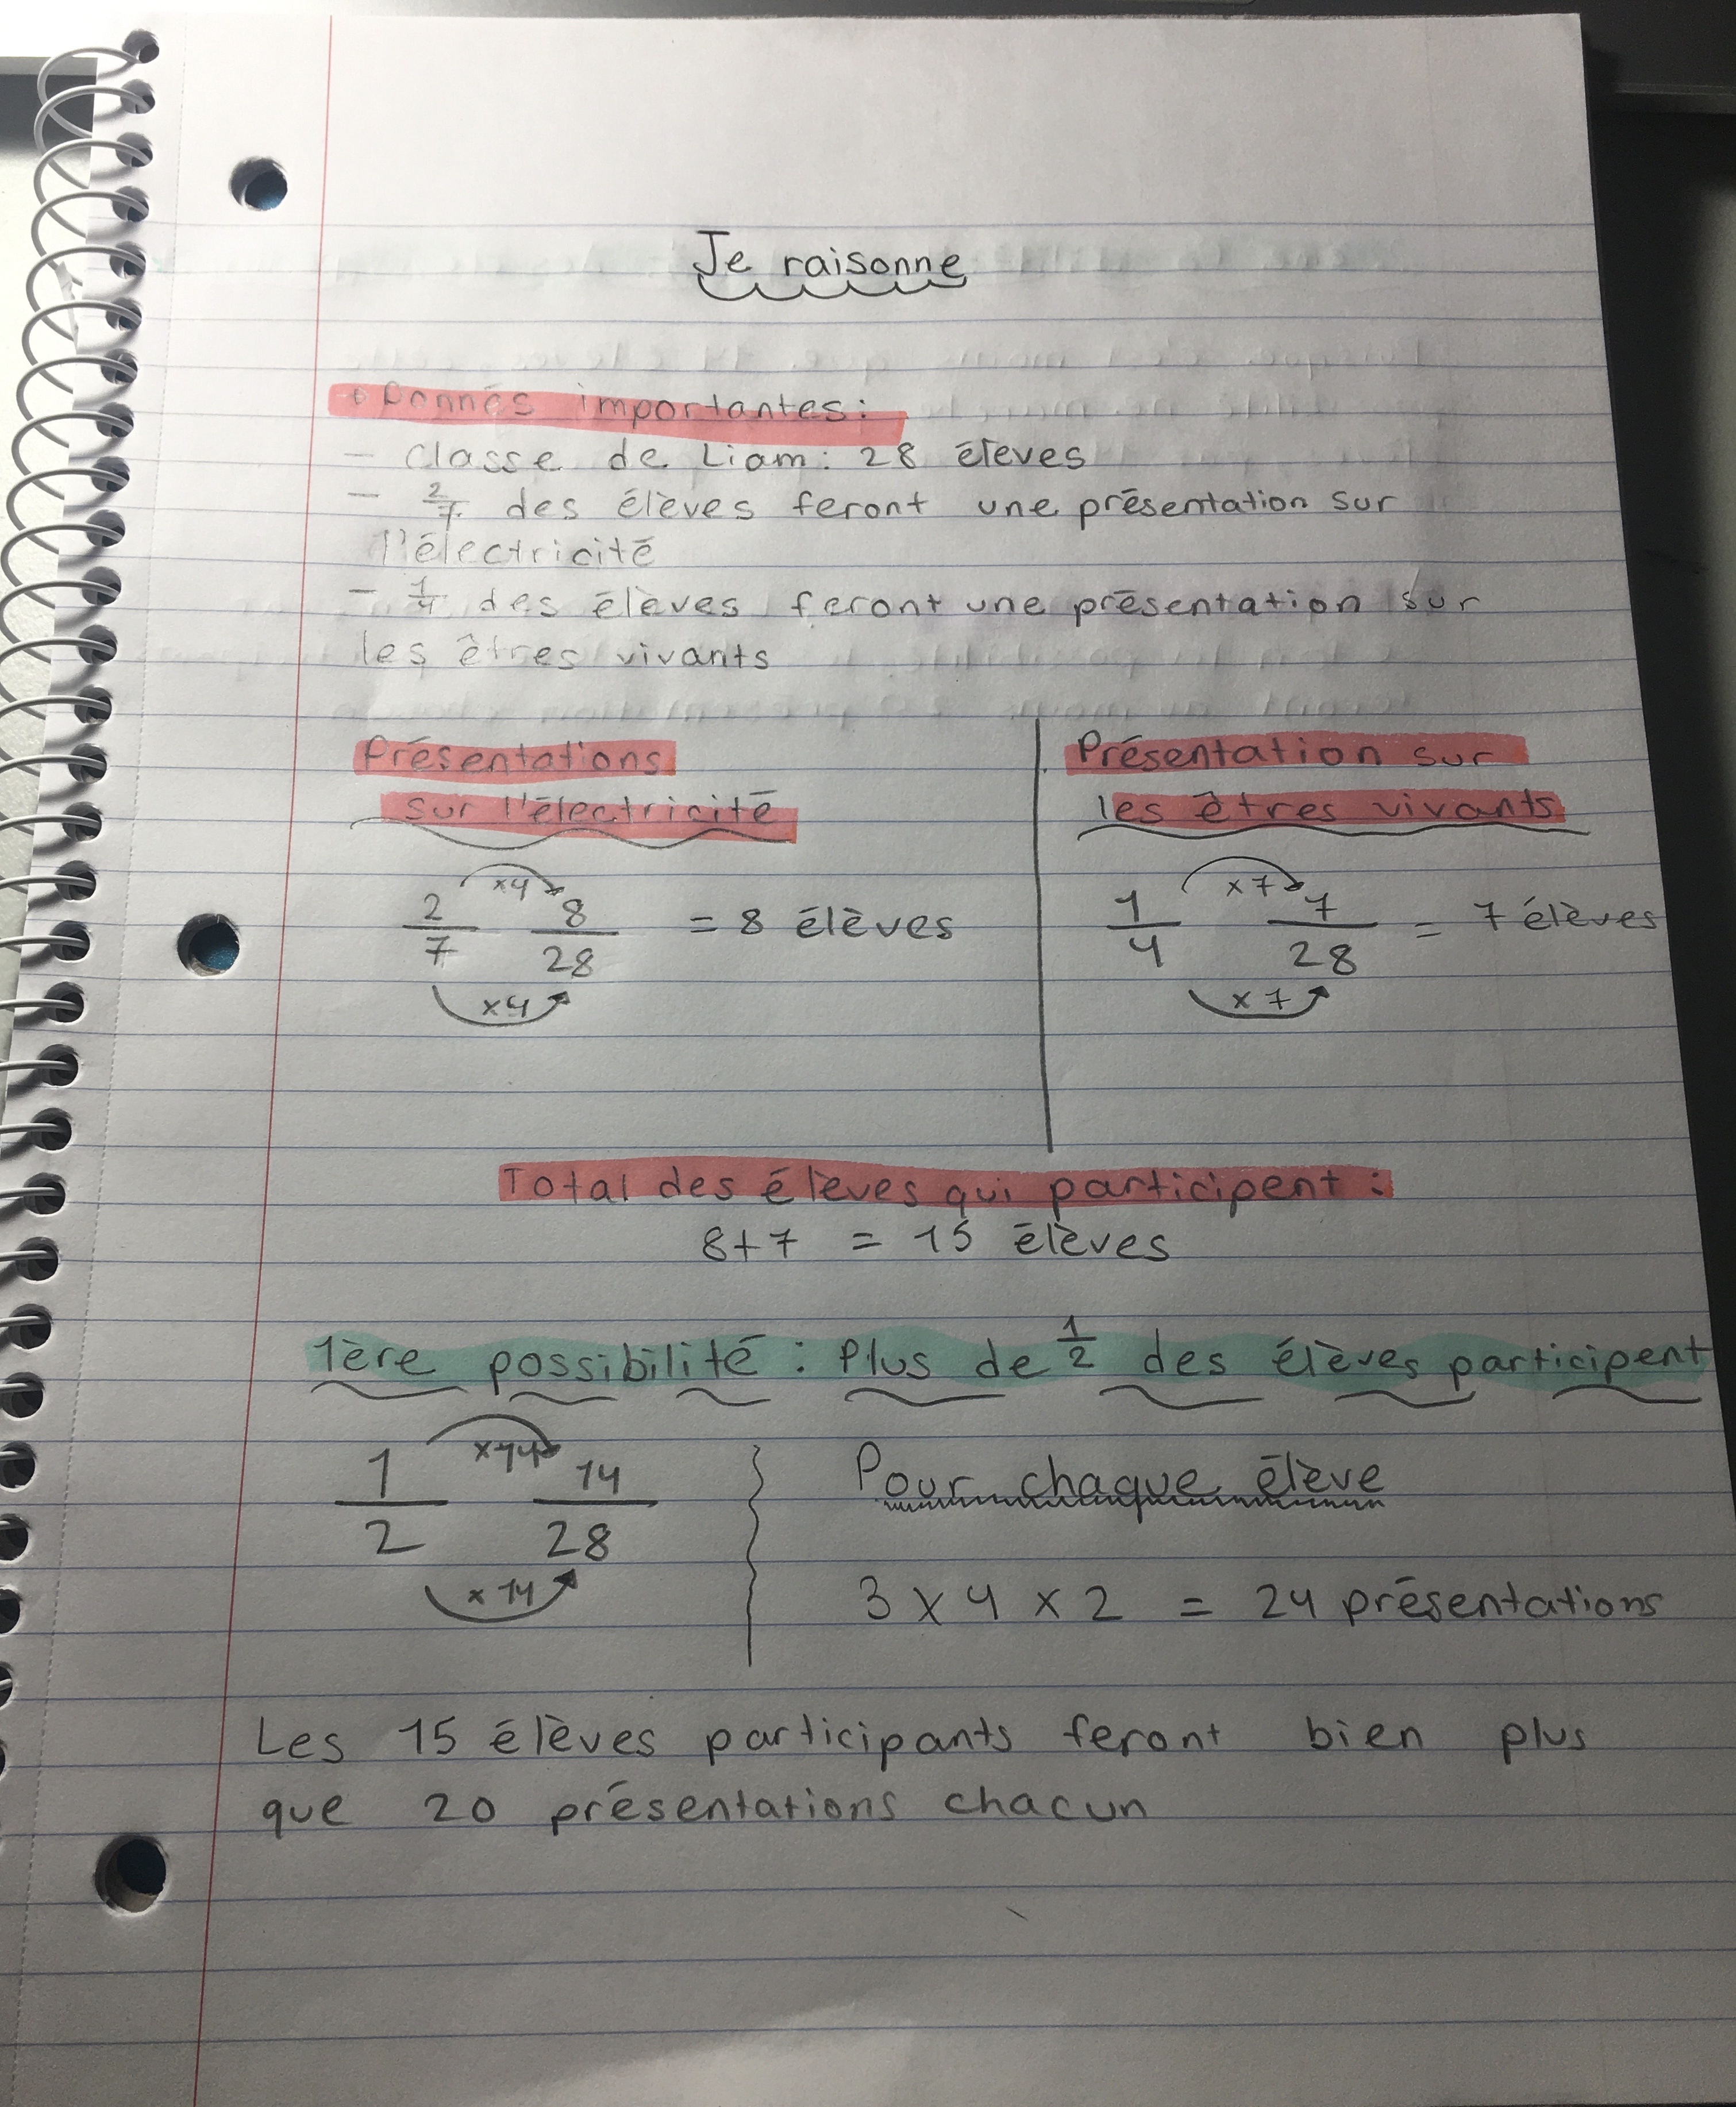 Je raisonne
Donnés importantes:
- Classe de Liam: 28 élèves
- 2/7 des élèves feront une présentation sur
l'électricité
- 1/4 des élèves feront une présentation sur
les êtres vivants
Présentations
sur l'électricité
x4
2/7 8/28 = 8 élèves
x4
Présentation sur
les êtres vivants
x7
1/4 7/28 = 7 élèves
x7
Total des élèves qui participent:
8+7 = 15 élèves
1ère possibilité: Plus de 1/2 des élèves participent
x14
1/2 14/28
x14
Pour chaque élève
3 x 4 x 2 = 24 présentations
Les 15 élèves participants feront bien plus
que 20 présentations chacun